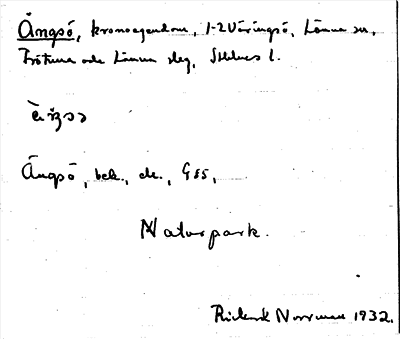 Ängsö, kronoegendom, 1-2 Väringsö, Länna sn,
Frötuna och Länna slg, Sthlms l.
Ängsö, bek., ek., G 85,
Naturpark.
Rickard Norrman 1932.